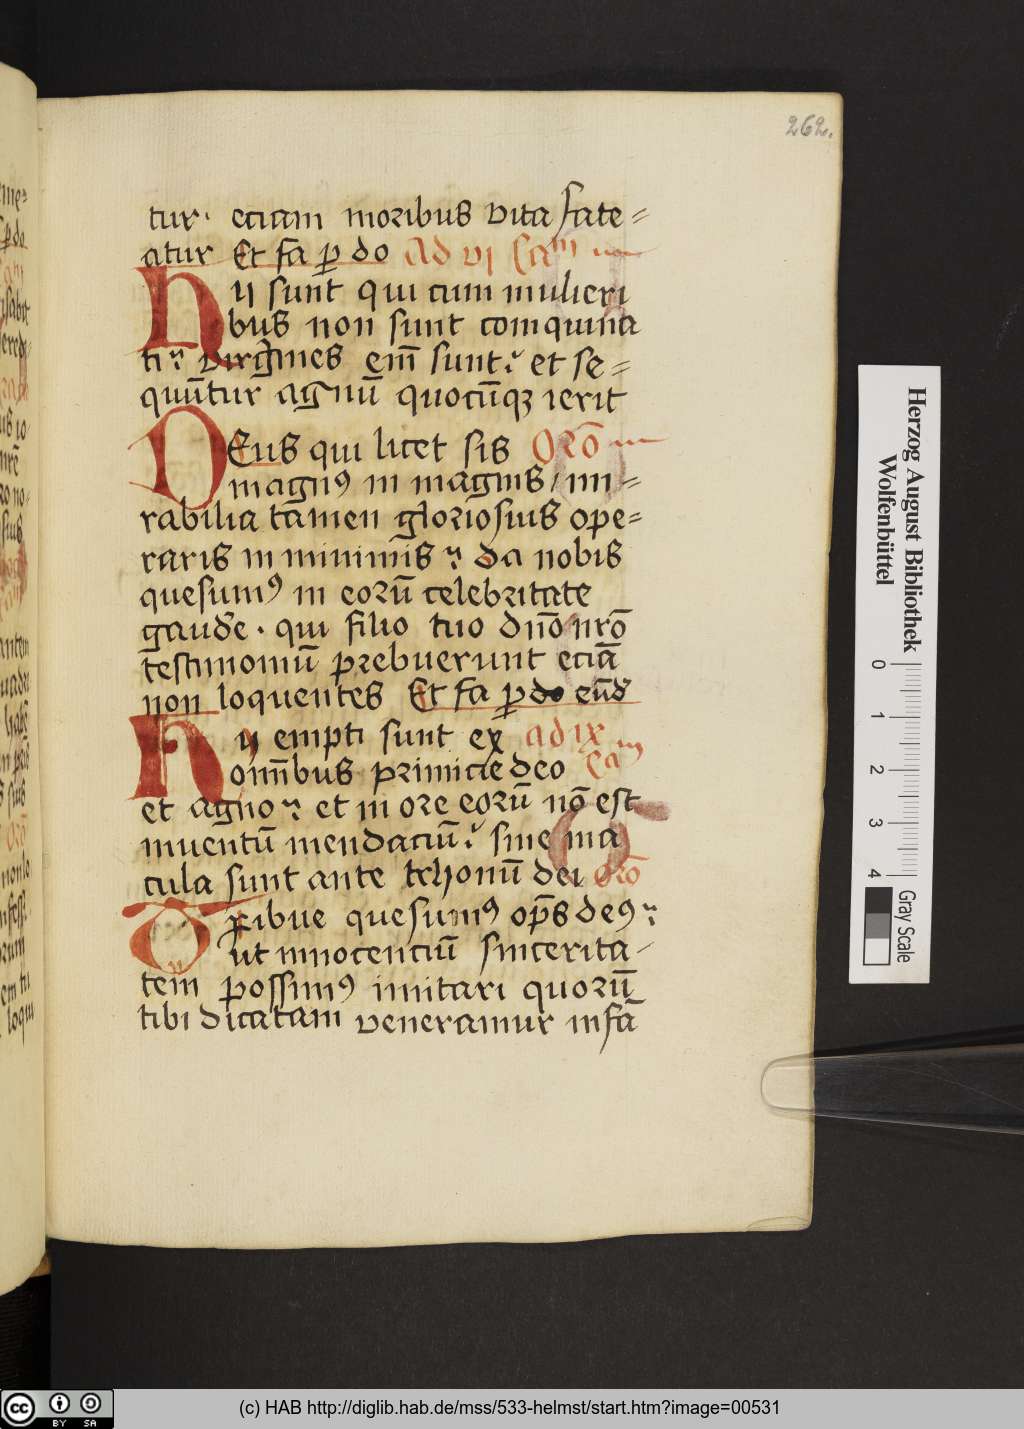 262.
tur· eciam moribus vita fate=
atur Et fa p̱ do Ad vj Cam
Hij sunt qui cum mulieri
bus non sunt comquina
ti virgines em̄ sunt et se=
quūtur agnū quocūqꝫ ierit
Deus qui licet sis Oro̅
magnꝰ in magnis mi=
rabilia tamen gloriosius ope=
raris in minimis da nobis
quesumꝰ in eorū celebritate
gaude · qui filio tuo dn̄o nr̄o
testimoniū prebuerunt eciā
non loquentes Et fa p̱ do eūd
Hij empti sunt ex ad ix
omn̄bus primicie deo Cam
et agno et in ore eorū nō est
inuentū mendaciū sine ma
cula sunt ante trhonū dei oro̅
Tribue quesumꝰ op̄s deꝰ
ut innocenciū sincerita-
tem possimꝰ imitari quorū
tibi dicatam veneramur infā
Herzog August Bibliothek
Wolfenbüttel
0 1 2 3 4
Gray Scale
cc BY SA
(c) HAB http://diglib.hab.de/mss/533-helmst/start.htm?image=00531